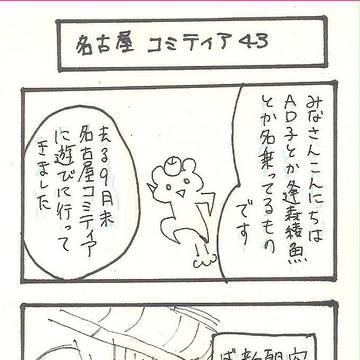 名古屋 コミティア43
みなさんこんにちは
AD子とか逢森綾魚
とか名乗ってるもの
です
去る9月末
名古屋コミティア
に遊びに行って
きました